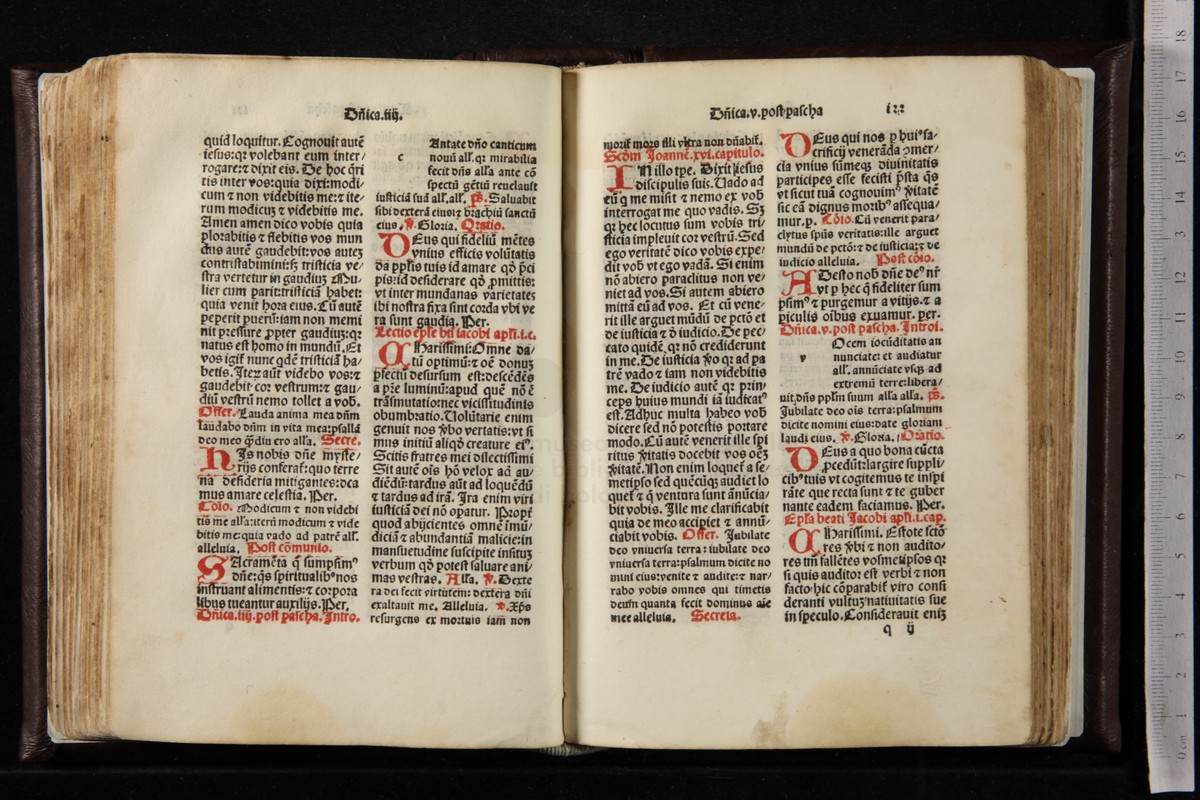 Dñica.iiij.
quid loquitur. Cognouit autē
iesus: qꝛ volebant eum inter/
rogare: ⁊ dixit eis. De hoc q̄ri
tis inter vos: quia dixi: modi/
cum ⁊ non videbitis me: ⁊ ite/
rum modicuꝫ ⁊ videbitis me.
Amen amen dico vobis quia
plorabitis ⁊ flebitis vos mun
dus autē gaudebit: vos auteꝫ
contristabimini: sꝫ tristicia ve/
stra vertetur in gaudiuꝫ Mu/
lier cum parit: tristiciā habet:
quia venit hora eius. Cū autē
peperit puerū: iam non memi
nit pressure ꝓpter gaudiuꝫ: qꝛ
natus est homo in mundū. Et
vos igit̄ nunc qdē tristiciā ha/
betis. Iteꝫ aūt videbo vos: ⁊
gaudebit cor vestrum: ⁊ gau/
diū vestrū nemo tollet a vob̄.
Offer. Lauda anima mea dn̄m
laudabo dn̄m in vita mea: psallā
deo meo q̄diu ero al'la. Secre.
HIs nobis dn̄e myste/
rijs conferat̄: quo terre
na desideria mitigantes: dca
mus amare celestia. Per.
Cōio. Modicum ⁊ non videbi
tis me al'la: iterū modicum ⁊ vide
bitis me: quia vado ad patrē all'.
alleluia. Post cōmunio.
SAcramēta q̄ sumpsim⁹
dn̄e: ⁊ qs spiritualib⁹ nos
instruant alimentis: ⁊ corpora
libus tueantur auxilijs. Per.
Dñica.iiij.post pascha. Intro.
c Antate dn̄o canticum
nouū all'. qꝛ mirabilia
fecit dn̄s al'la ante cō
spectū gētiū reuelauit
iusticiā suā all'. all'. ps. Saluabit
sibi dexterā eius: ⁊ brachiū sanctū
eius. ℣. Gloria. Oratio.
DEus qui fideliū mētes
vnius efficis volūtatis
da pplis tuis id amare qd̄ p̄ci
pis: id desiderare qd̄ ꝓmittis:
vt inter mundanas varietates
ibi nostra fixa sint corda vbi ve
ra sunt gaudia. Per.
Lectio epl'e bti iacobi apl'i.i.c.
CHarissimi: Omne da/
tū optimū: ⁊ oē donuꝫ
ꝑfectū desursum est: descēdēs
a p̄re luminū: apud quē nō ē
trāsmutatio: nec vicissitudinis
obumbratio. Uolūtarie enim
genuit nos v̄bo veritatis: vt si
mus initiū aliqd̄ creature ei⁹.
Scitis fratres mei dilectissimi
Sit autē ois hō velox ad au/
diēdū: tardus aūt ad loquēdū
⁊ tardus ad irā. Ira enim viri
iusticiā dei nō opatur. Propt̄
quod abijcientes omnē imū/
diciā ⁊ abundantiā malicie: in
mansuetudine suscipite insituꝫ
verbum qd̄ potest saluare ani/
mas vestras. Al'la. ℣. Dexte
ra dei fecit virtutem: dextera dn̄i
exaltauit me. Alleluia. ℣. Xp̄s
resurgens ex mortuis iam non
Dñica.v.post pascha
morit̄ mors illi vltra non dn̄abit̄.
Scd̄m Joannē.xvi.capitulo.
IN illo tpe. Dixit iesus
discipulis suis. Uado ad
eū q̄ me misit ⁊ nemo ex vob̄
interrogat me quo vadis. Sꝫ
qꝛ hec locutus sum vobis tri/
sticia impleuit cor vestrū. Sed
ego veritatē dico vobis expe/
dit vob̄ vt ego vadā. Si enim
nō abiero paraclitus non ve/
niet ad vos. Si autem abiero
mittā eū ad vos. Et cū vene/
rit ille arguet mūdū de pctō et
de iusticia ⁊ d̄ iudicio. De pec/
cato quidē. qꝛ nō crediderunt
in me. De iusticia v̄o qꝛ ad pa
trē vado ⁊ iam non videbitis
me. De iudicio autē qꝛ prin/
ceps huius mundi iā iudicat⁹
est. Adhuc multa habeo vob̄
dicere sed nō potestis portare
modo. Cū autē venerit ille spi
ritus v̄itatis docebit vos oēꝫ
v̄itatē. Non enim loquet̄ a se/
metipso sed quecūqꝫ audiet lo
quet̄ ⁊ q̄ ventura sunt ānūcia/
bit vobis. Ille me clarificabit
quia de meo accipiet ⁊ annū/
ciabit vobis. Offer. Jubilate
deo vniuersa terra: iubilate deo
vniuersa terra: psalmum dicite no
mini eius: venite ⁊ audite: ⁊ nar/
rabo vobis omnes qui timetis
deum quanta fecit dominus aie
mee alleluia. Secreta.
122
DEus qui nos ꝑ hui⁹ sa/
crificij venerāda ꝯmer/
cia vnius sūmeqꝫ diuinitatis
participes esse fecisti p̄sta q̄s
vt sicut tuā cognouim⁹ v̄itatē
sic eā dignus morib⁹ assequa/
mur. p. Cōio. Cū venerit para/
clytus spūs veritatis: ille arguet
mundū de pctō: ⁊ de iusticia: ⁊ de
iudicio alleluia. Post cōio.
ADesto nob̄ dn̄e de⁹ nr̄
vt ꝑ hec q̄ fideliter sum
psim⁹ ⁊ purgemur a vitijs: ⁊ a
ꝑiculis oibus exuamur. per.
Dñica.v.post pascha. Introi.
v Ocem iocūditatis an
nunciate: et audiatur
all'. annūciate vsqꝫ ad
extremū terre: libera/
uit dn̄s pplm suum al'la al'la. ps.
Jubilate deo ois terra: psalmum
dicite nomini eius: date gloriam
laudi eius. ℣. Gloria. Oratio.
DEus a quo bona cūcta
ꝓcedūt: largire suppli/
cib⁹ tuis vt cogitemus te inspi
rāte que recta sunt ⁊ te guber
nante eadem faciamus. Per.
Epl'a beati Jacobi apl'i.i.cap.
CHarissimi. Estote fctō
res v̄bi ⁊ non audito/
res tm̄ fallētes vosmetipsos qꝛ
si quis auditor est verbi ⁊ non
factor hic cōparabit̄ viro consi
deranti vultuꝫ natiuitatis sue
in speculo. Considerauit eniꝫ
q ij